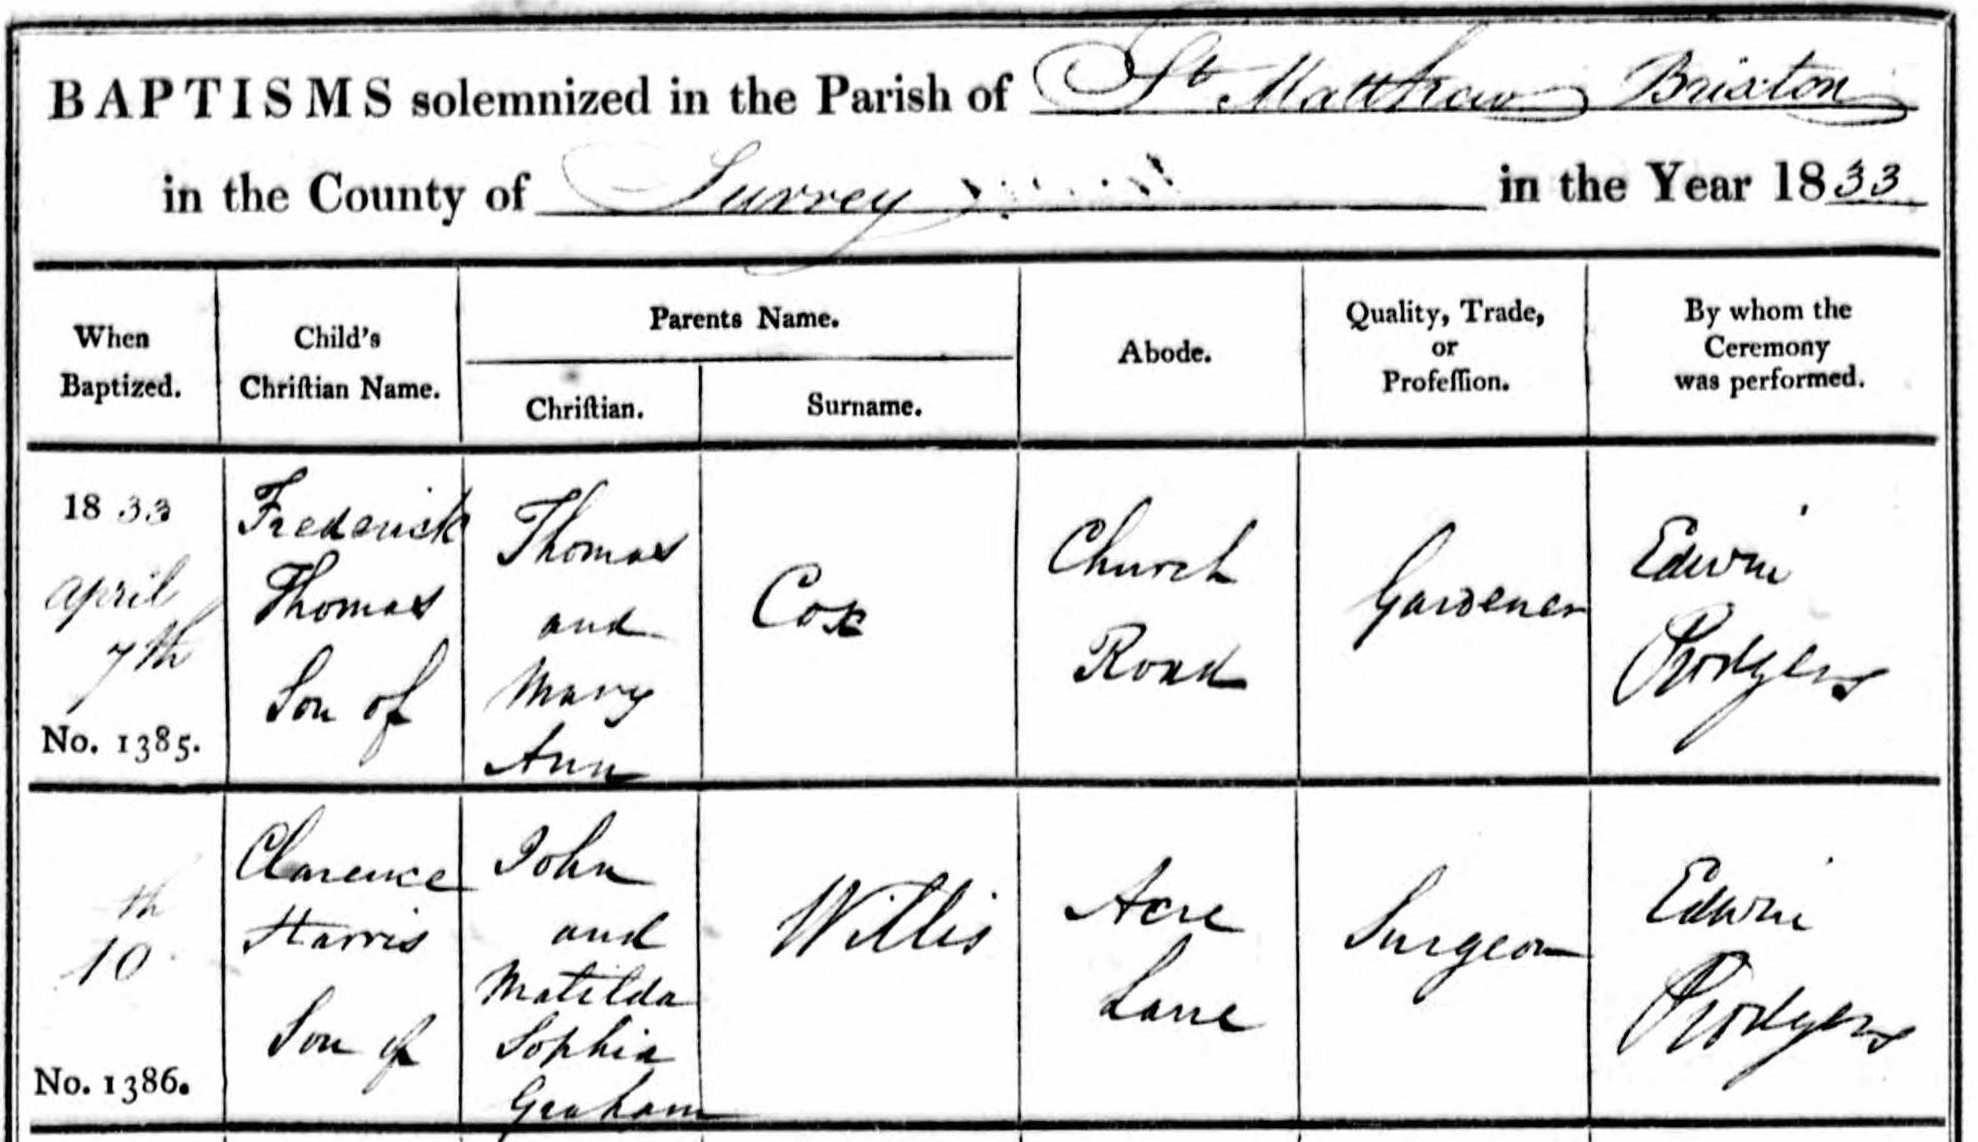 BAPTISMS solemnized in the Parish of St. Matthew Brixton
in the County of Surrey in the Year 1833
When Baptized.
Child's Christian Name.
Parents Name.
Christian.
Surname.
Abode.
Quality, Trade, or Profession.
By whom the Ceremony was performed.
1833
April
7th
No. 1385.
Frederick
Thomas
Son of
Thomas
and
Mary
Ann
Cox
Church
Road
Gardener
Edwin
Prodgers
10th
No. 1386.
Clarence
Harris
Son of
John
and
Matilda
Sophia
Graham
Willis
Acre
Lane
Surgeon
Edwin
Prodgers